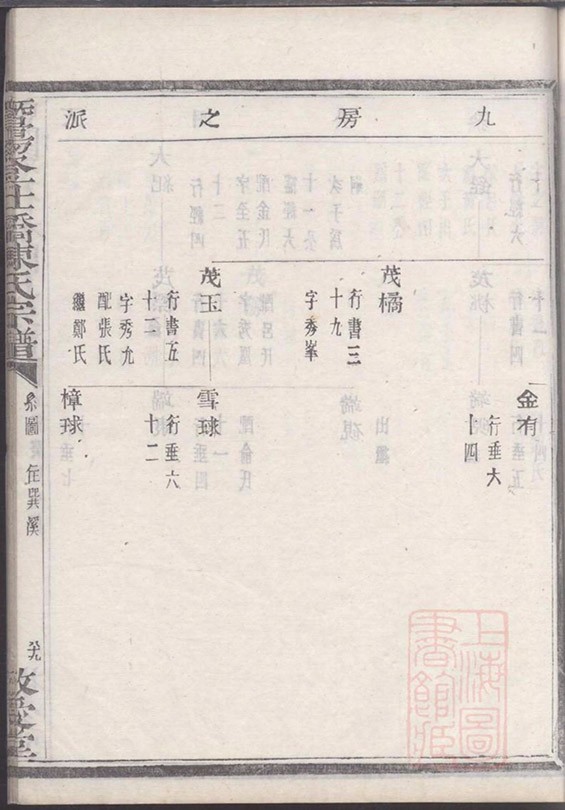 九房之派
金有
行垂大
十四
茂橘
行書三
十九
字秀峯
茂玉
行書五
十二
字秀九
配張氏
繼鄭氏
雪球
行垂六
十二
樟球
橋陳氏宗譜
系圖
在巽溪
上海圖書館藏